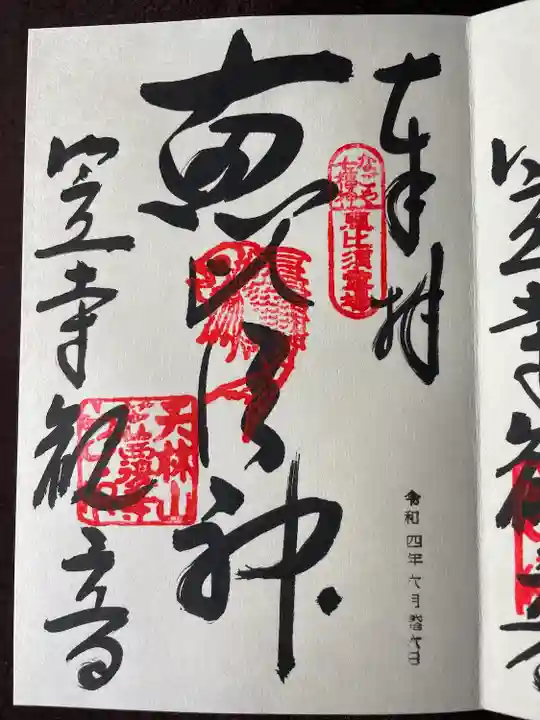 奉拝
なごや
七福神
恵比須霊場
恵比須神
令和四年六月
笠寺観音
天林山
笠寺観音